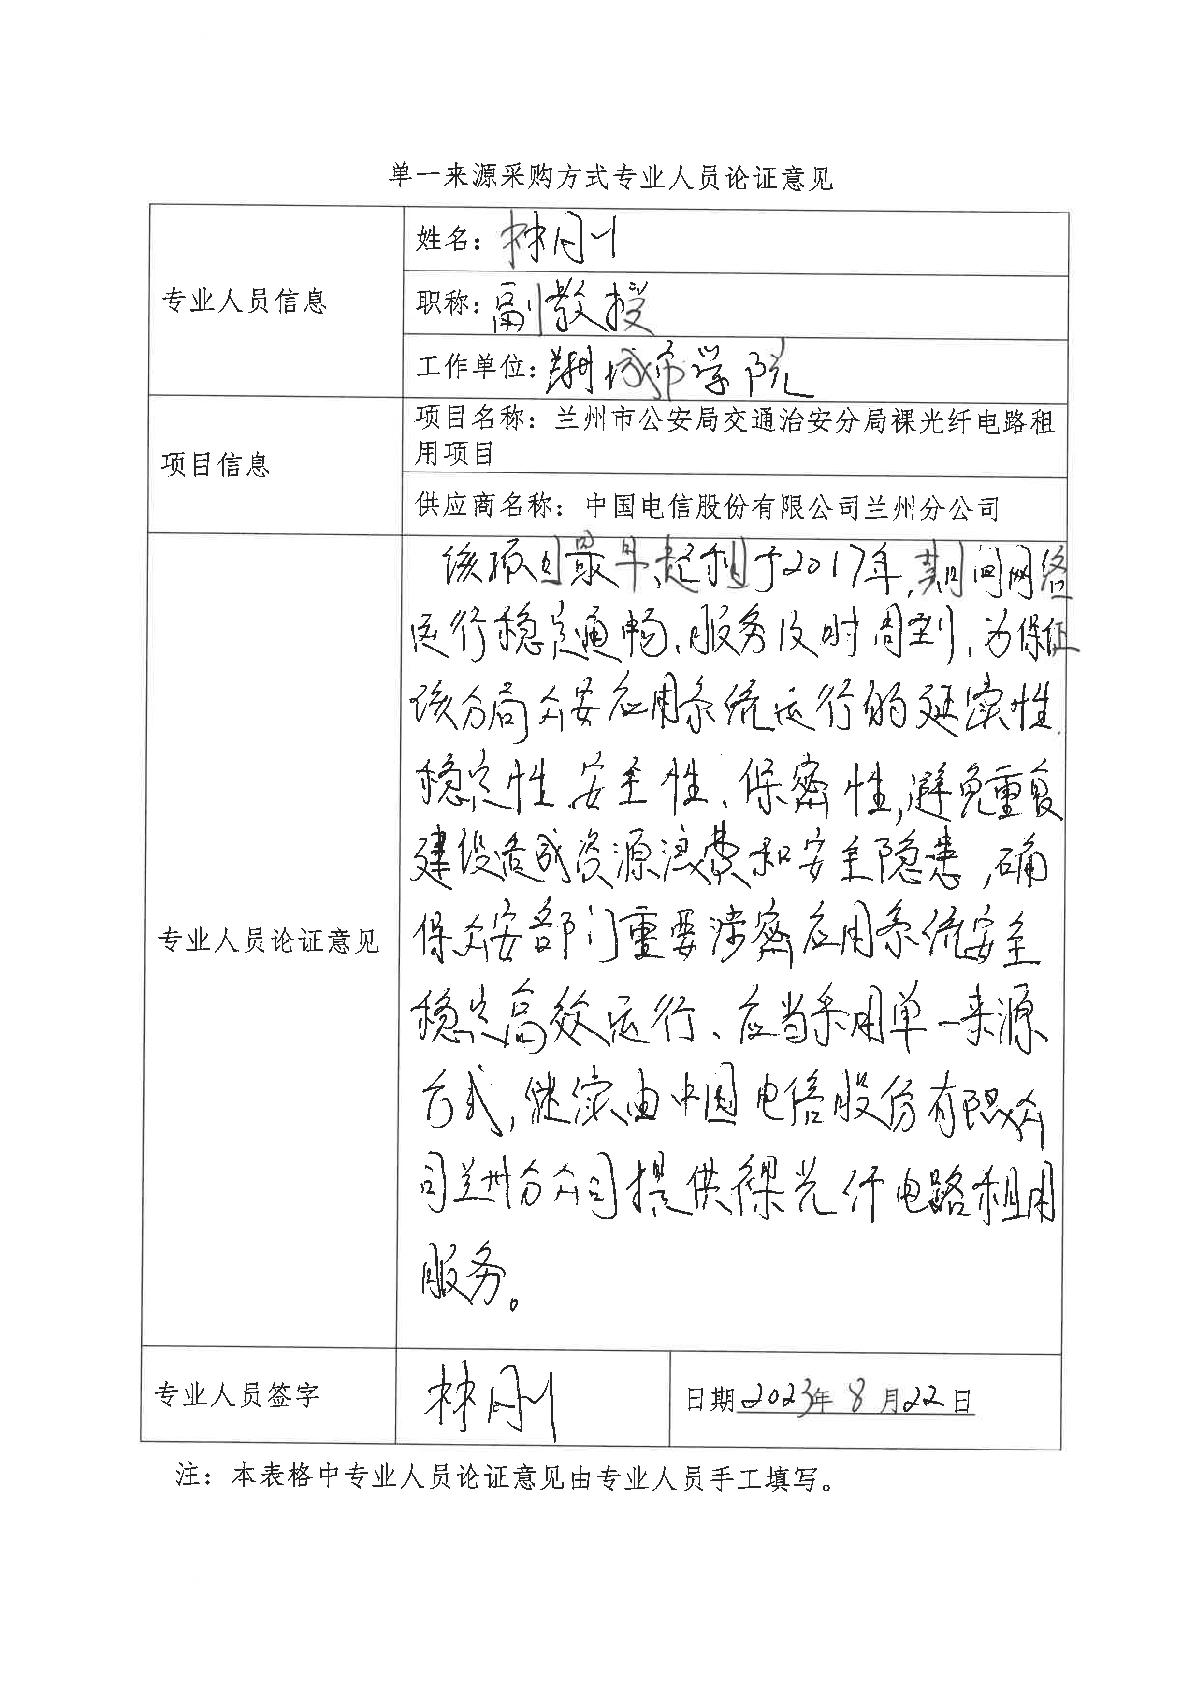 单一来源采购方式专业人员论证意见
专业人员信息
姓名：林刚
职称：副教授
工作单位：兰州城市学院
项目信息
项目名称：兰州市公安局交通治安分局裸光纤电路租
用项目
供应商名称：中国电信股份有限公司兰州分公司
专业人员论证意见
该项目最早起租于2017年，期间网络
运行稳定通畅、服务及时周到，为保证
该分局公安应用系统运行的延续性、
稳定性、安全性、保密性，避免重复
建设造成资源浪费和安全隐患，确
保公安部门重要涉密应用系统安全
稳定高效运行、应当采用单一来源
方式，继续由中国电信股份有限公
司兰州分公司提供裸光纤电路租用
服务。
专业人员签字
林刚
日期2023年8月22日
注：本表格中专业人员论证意见由专业人员手工填写。